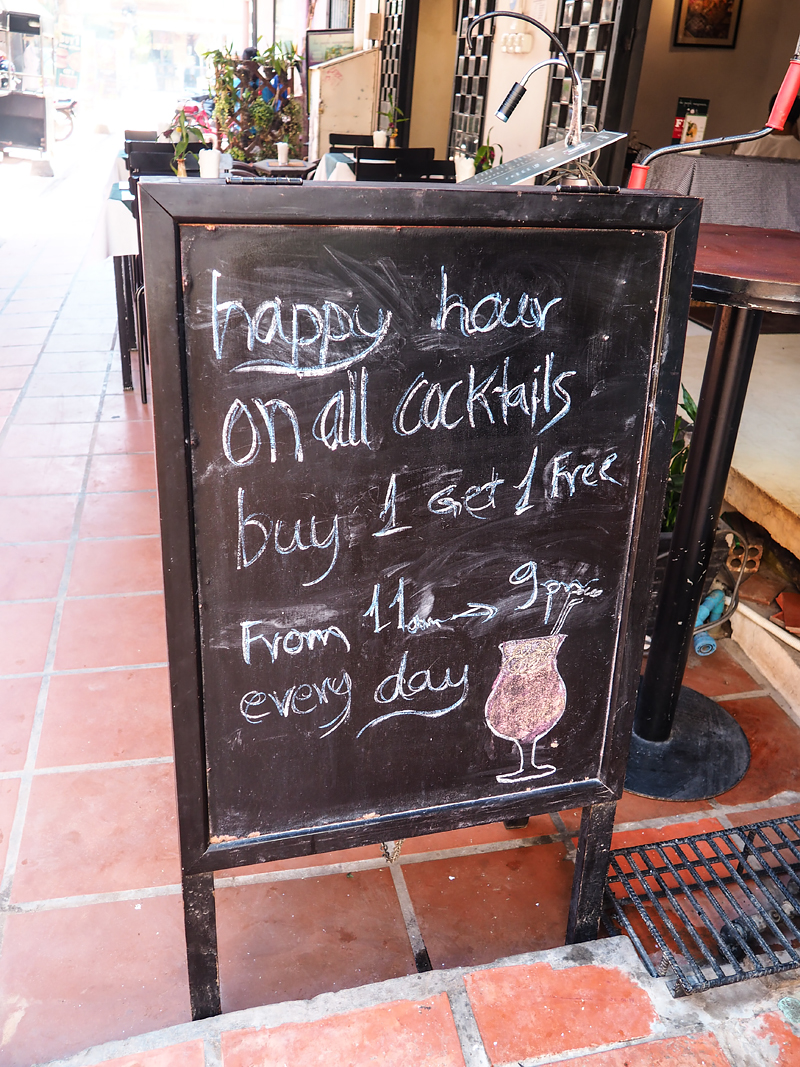 happy hour
on all cocktails
buy 1 Get 1 Free
From 11am → 9pm
every day